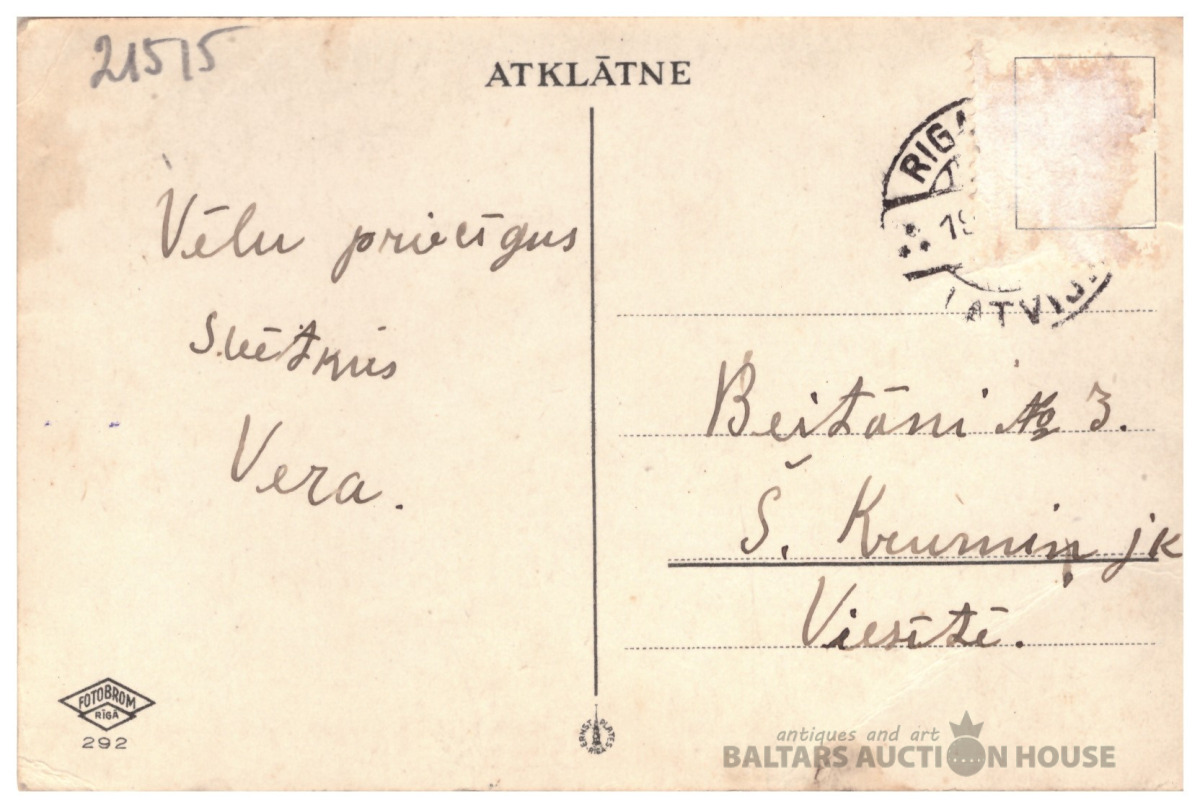 21515
ATKLĀTNE
RIGA
19
LATVIJA
Vēlu priecīgus
svētkus
Vera.
Beitāni № 3.
Š. Krumiņ jk
Viesītē.
FOTOBROM
RĪGĀ
292
ERNST PLATES
RIGA
antiques and art
BALTARS AUCTION HOUSE